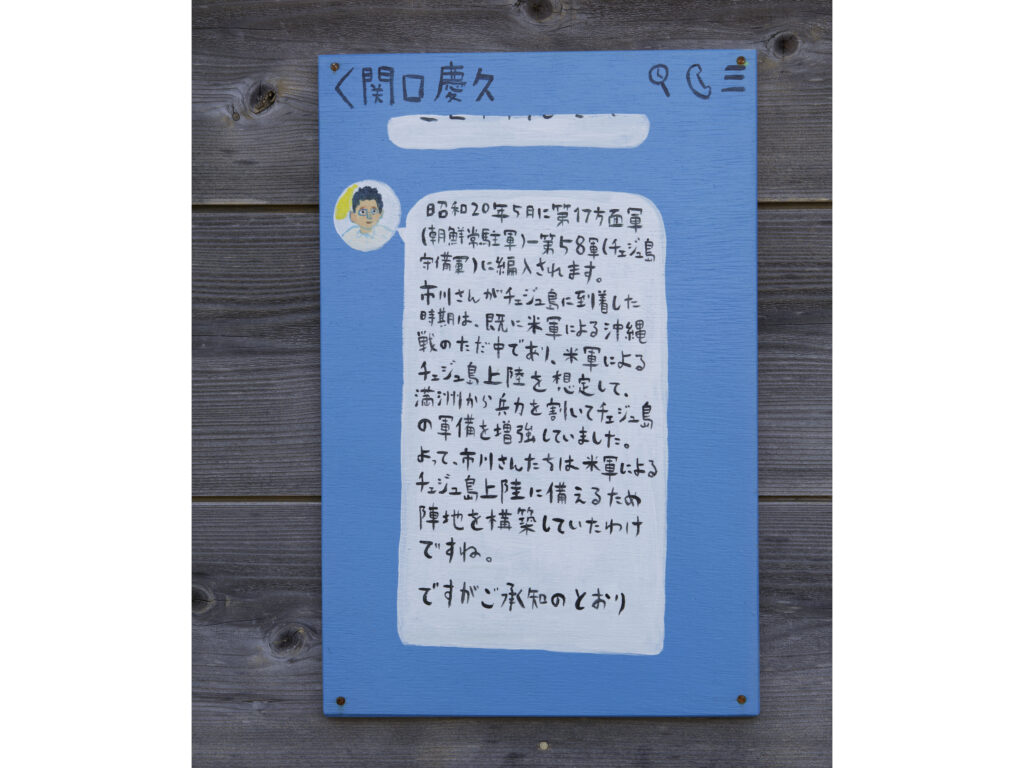 く関口慶久
昭和20年5月に第17方面軍
(朝鮮常駐軍)ー第58軍(チェジュ島
守備軍)に編入されます。
市川さんがチェジュ島に到着した
時期は、既に米軍による沖縄
戦のただ中であり、米軍による
チェジュ島上陸を想定して、
満洲から兵力を割いてチェジュ島
の軍備を増強していました。
よって、市川さんたちは米軍による
チェジュ島上陸に備えるため
陣地を構築していたわけ
ですね。
ですがご承知のとおり